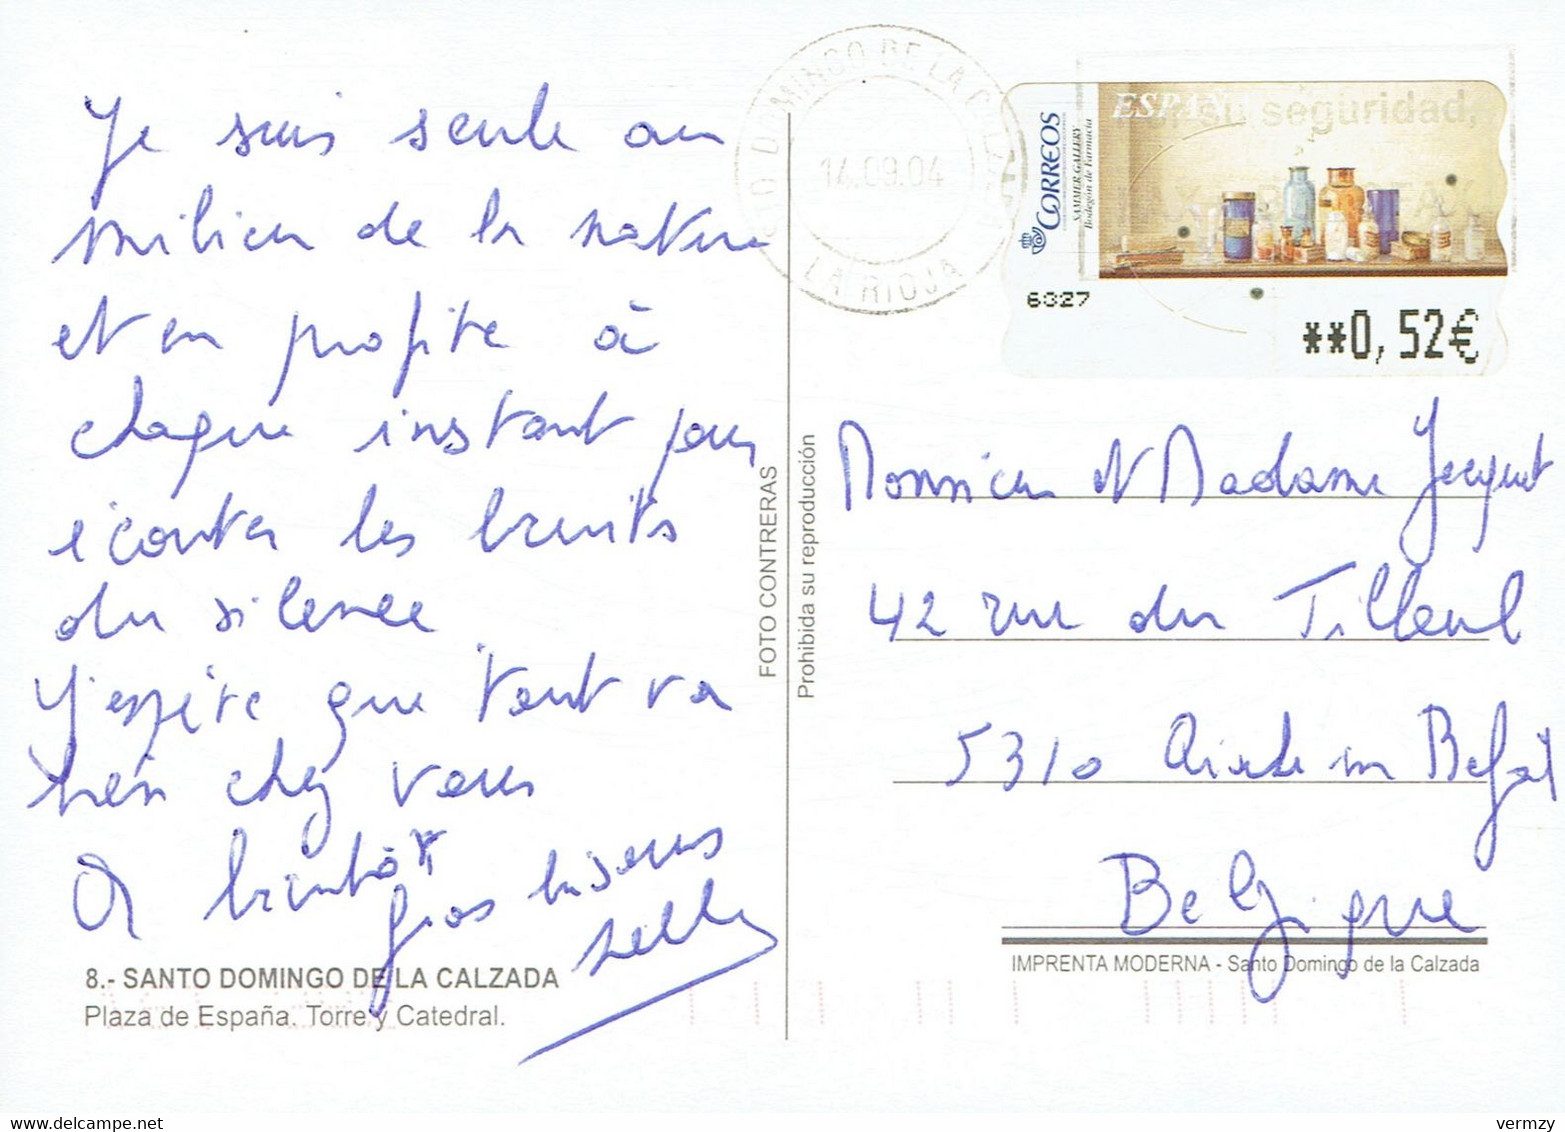 Je suis seule au
milieu de la nature
et en profite à
chaque instant pour
écouter les bruits
du silence
J'espère que tout va
bien chez vous
A bientôt
Gros bisous
8.- SANTO DOMINGO DE LA CALZADA
Plaza de España. Torre y Catedral.
FOTO CONTRERAS
Prohibida su reproducción
STO DOMINGO DE LA CALZADA
14.09.04
LA RIOJA
CORREOS
SAMMER GALLERY
Bodegón de Farmacia
ESPAÑA
su seguridad,
6027
**0,52€
Monsieur et Madame Jacquet
42 rue du Tilleul
5310
Belgique
IMPRENTA MODERNA - Santo Domingo de la Calzada
vermzy